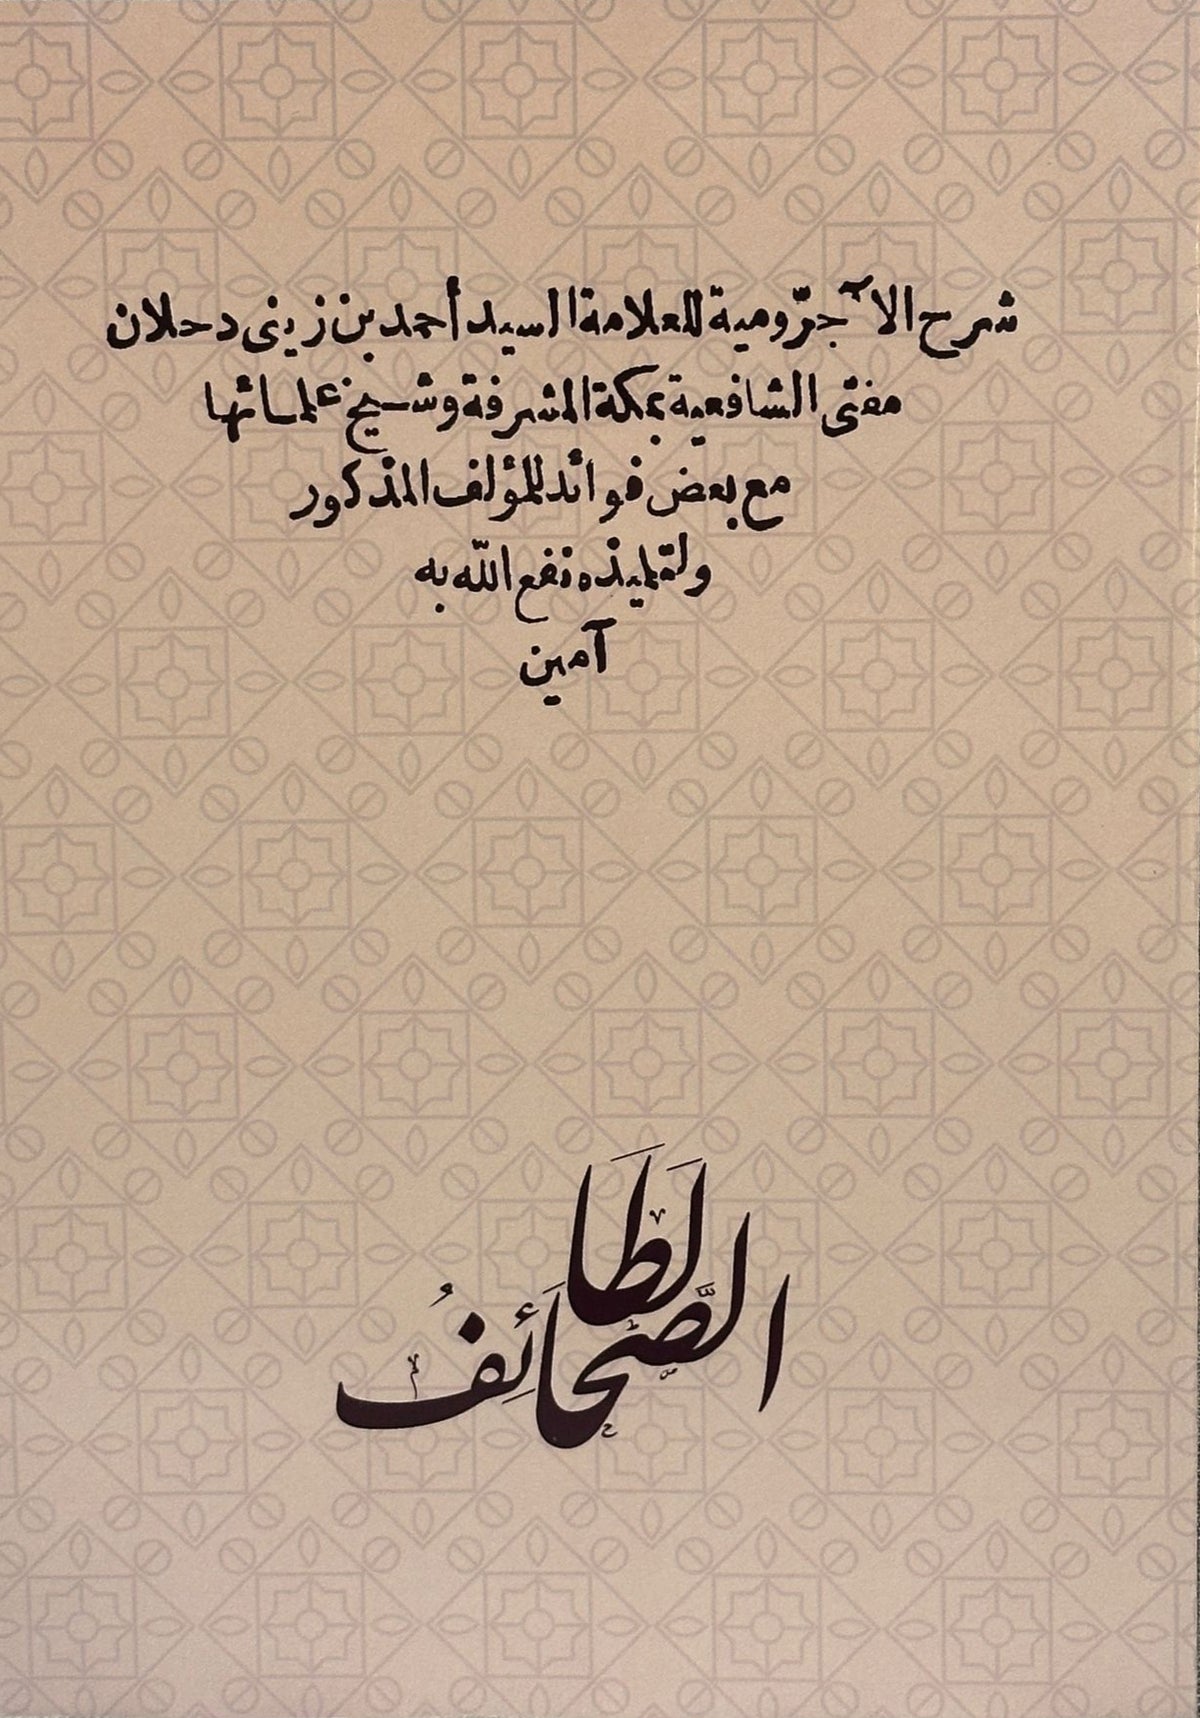 شرح الآجرّومية للعلامة السيد أحمد بن زينى دحلان
مفتى الشافعية بمكة المشرفة وشيخ علمائها
مع بعض فوائد للمؤلف المذكور
ولتلميذه نفع اللّه به
آمين
لطا
الصَّحَائِفُ